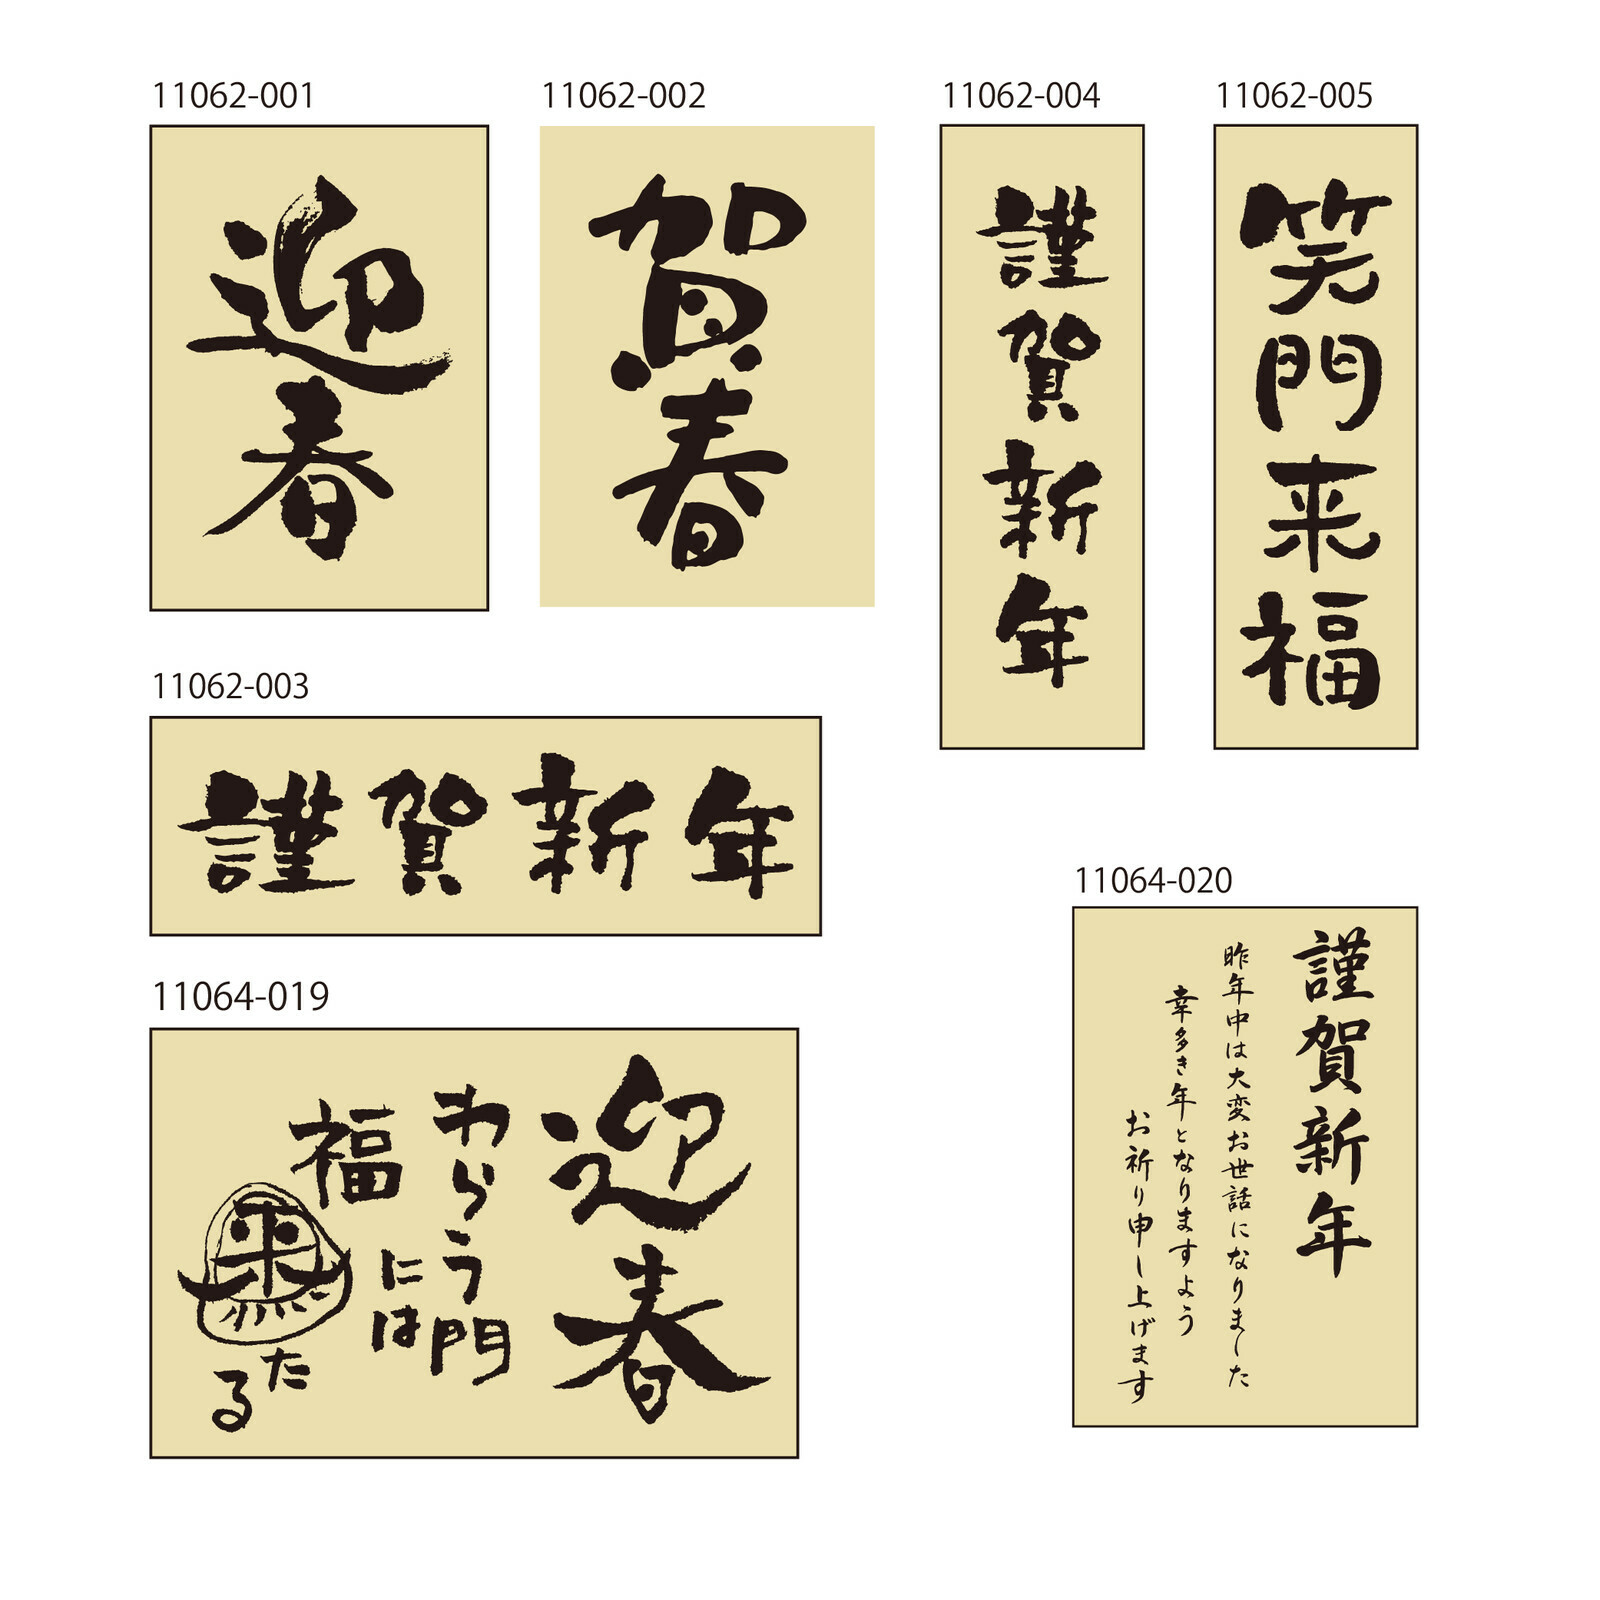 11062-001
迎春
11062-002
賀春
11062-004
謹賀新年
11062-005
笑門来福
11062-003
謹賀新年
11064-019
迎春
わらう門
には
福
来
たる
11064-020
謹賀新年
昨年中は大変お世話になりました
幸多き年となりますよう
お祈り申し上げます